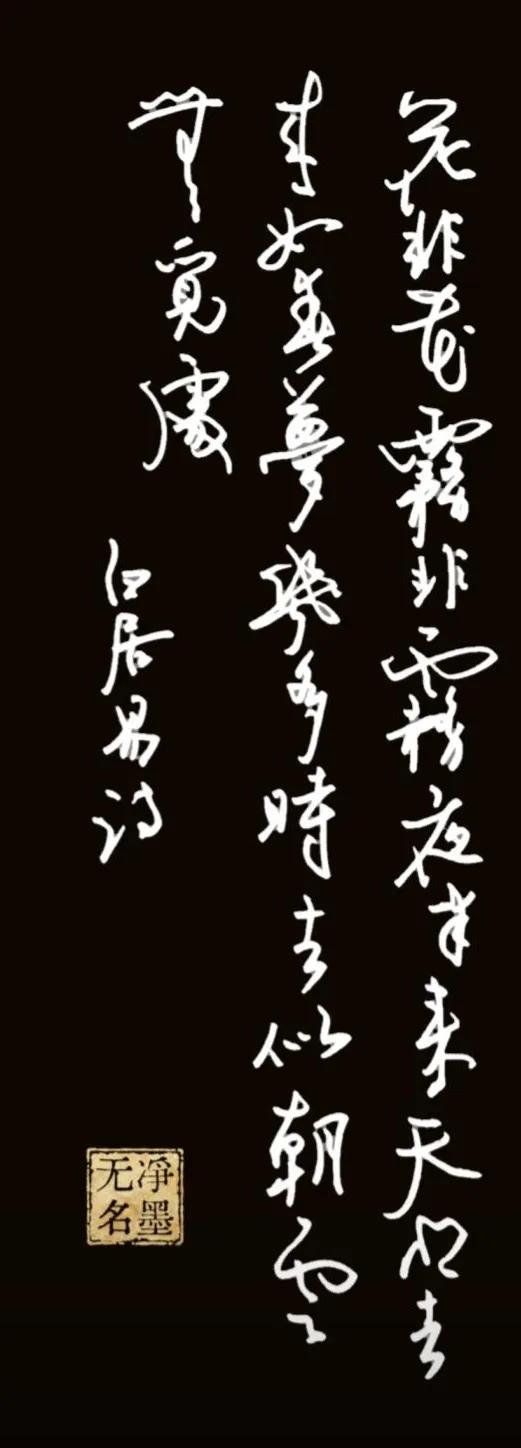 花非花霧非霧夜半来天明去
来如春夢幾多時去似朝雲
無覓處
白居易诗
凈墨
无名